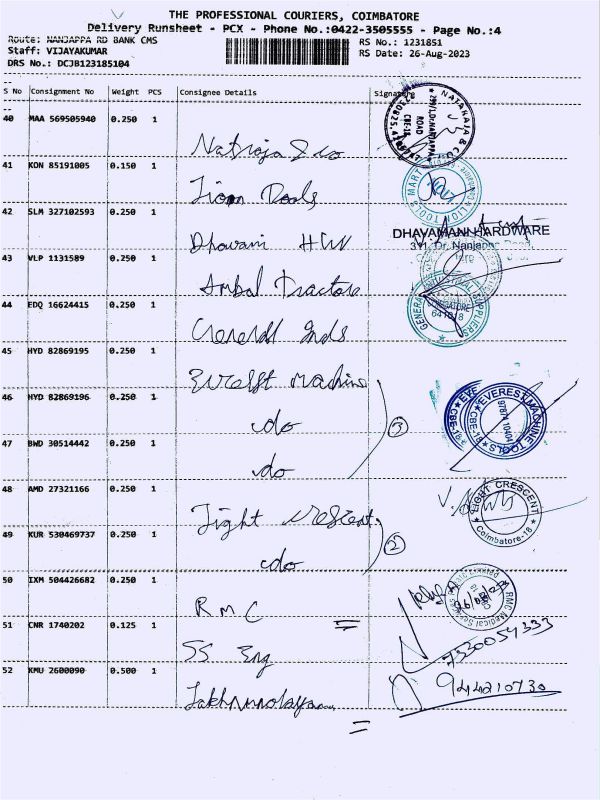 THE PROFESSIONAL COURIERS, COIMBATORE
Delivery Runsheet - PCX - Phone No.:0422-3505555 - Page No.:4
Route: NANJAPPA RD BANK CMS RS No.: 1231851
Staff: VIJAYAKUMAR RS Date: 26-Aug-2023
DRS No.: DCJB123185104
S No Consignment No Weight PCS Consignee Details Signature
40 MAA 569505940 0.250 1
NATARAJA & CO
ROAD
Natraja & co
41 KON 85191005 0.150 1
TOOLS MART
Tools
42 SLM 327102593 0.250 1
DHAYAMANN HARDWARE
Dr. Nanjappa Road,
H/W
43 VLP 1131589 0.250 1
Ambal Tractors
44 EDQ 16624415 0.250 1
GENERAL INDUSTRIAL SUPPLIERS
COIMBATORE
General Inds
45 HYD 82869195 0.250 1
Machine
46 HYD 82869196 0.250 1
EVEREST MACHINE TOOLS
CBE-18
97871 10404
do
3
47 BWD 30514442 0.250 1
do
48 AMD 27321166 0.250 1
LIGHT CRESCENT
Coimbatore-18
Light crescent
49 KUR 530469737 0.250 1
do
2
50 IXM 504426682 0.250 1
RMC Medical Services
RMC
51 CNR 1740202 0.125 1
SS Eng
7330054333
52 KMU 2600090 0.500 1
9442210730